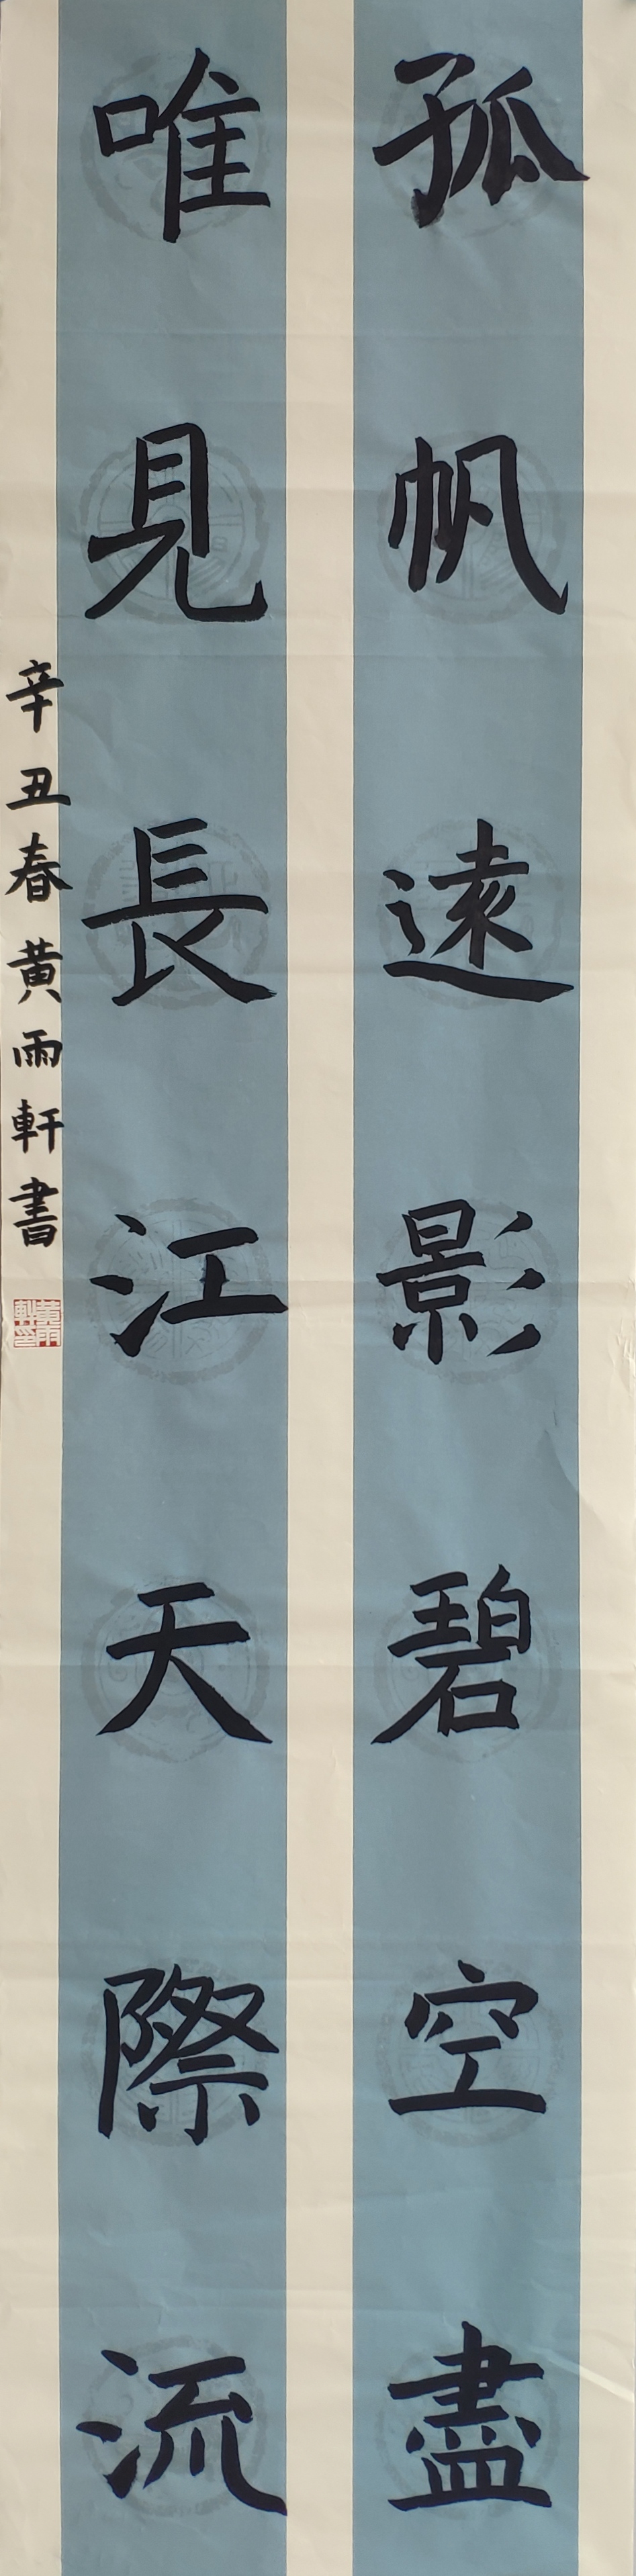 孤帆遠影碧空盡
唯見長江天際流
辛丑春黃雨軒書
黃雨軒印